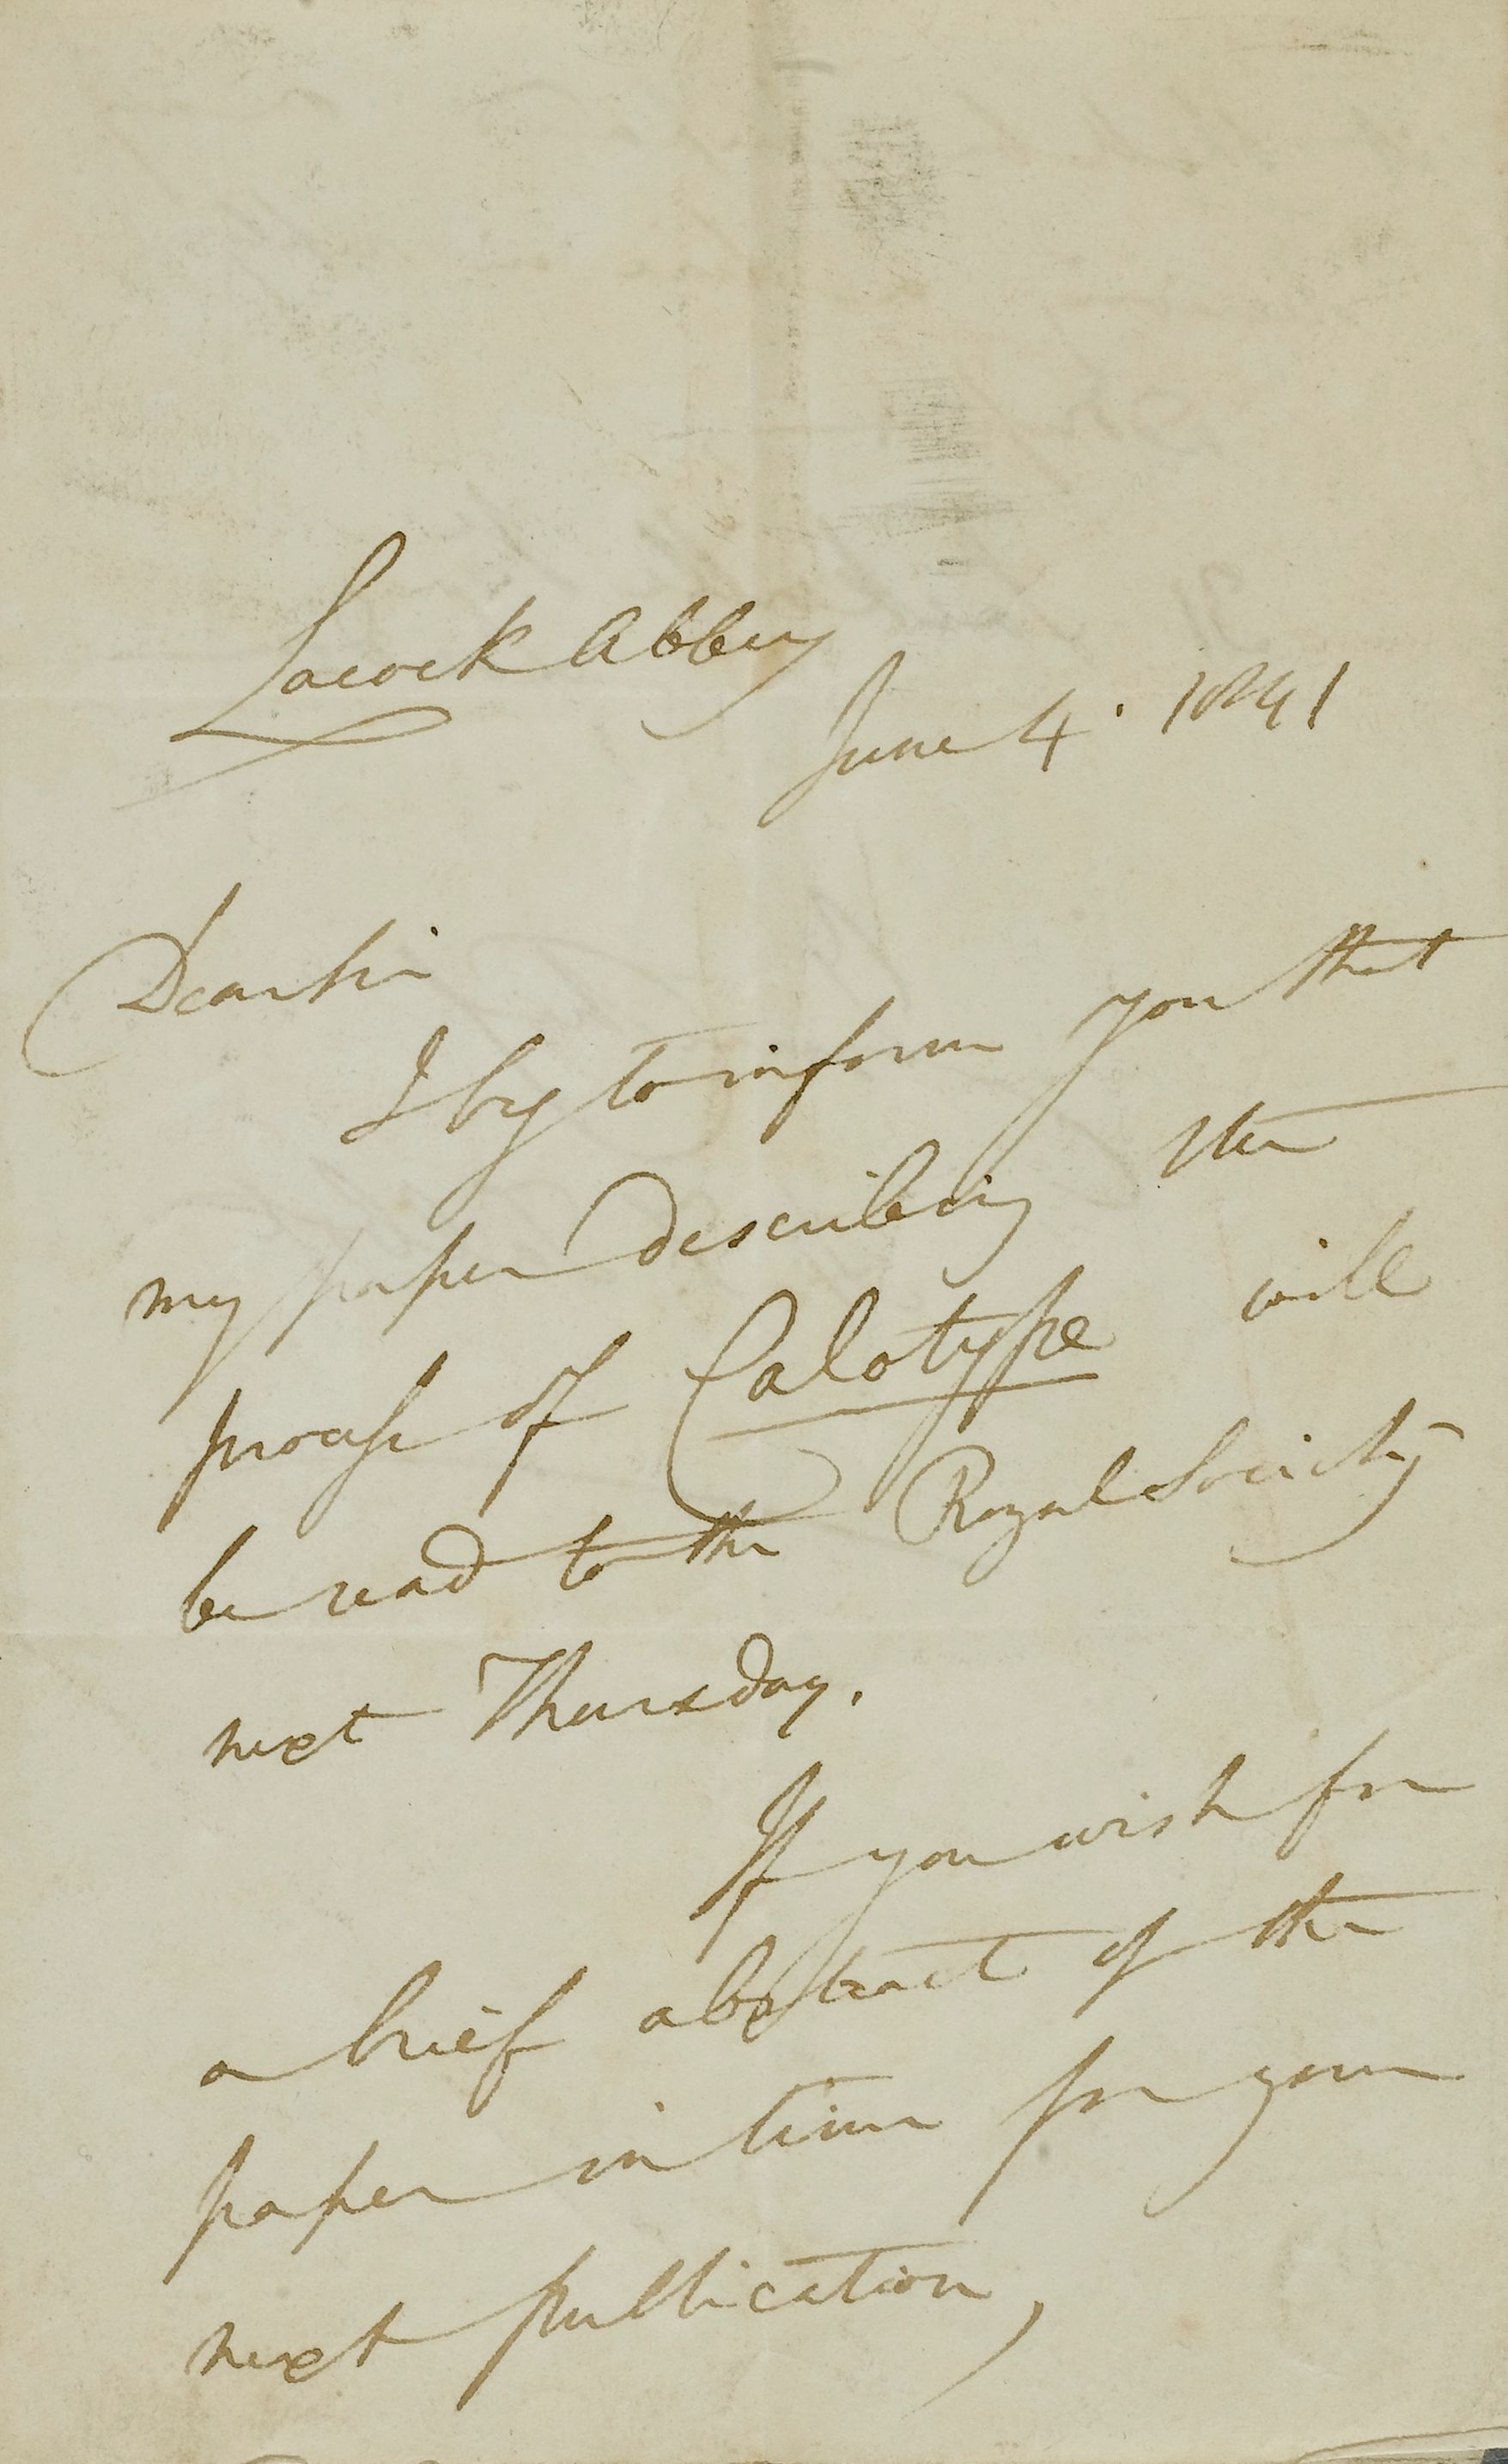 Lacock Abbey
June 4. 1841
Dear Sir
I beg to inform you that
my paper describing the
process of Calotype will
be read to the Royal Society
next Thursday.
If you wish for
a brief abstract of the
paper in time for your
next publication,